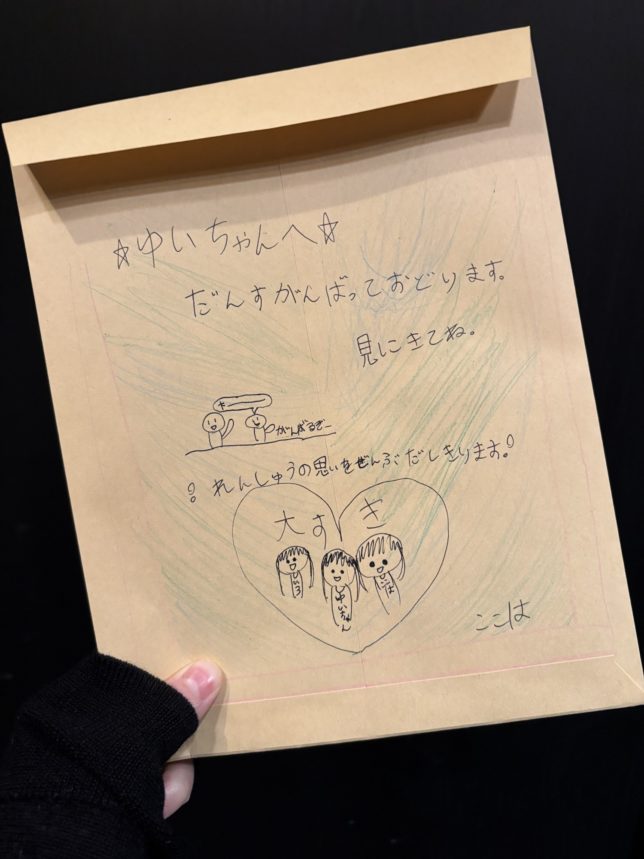 ☆ゆいちゃんへ☆
だんすがんばっておどります。
見にきてね。
がんばるぞー
れんしゅうの思いをぜんぶだしきります!
大すき
ゆいちゃん
ここは